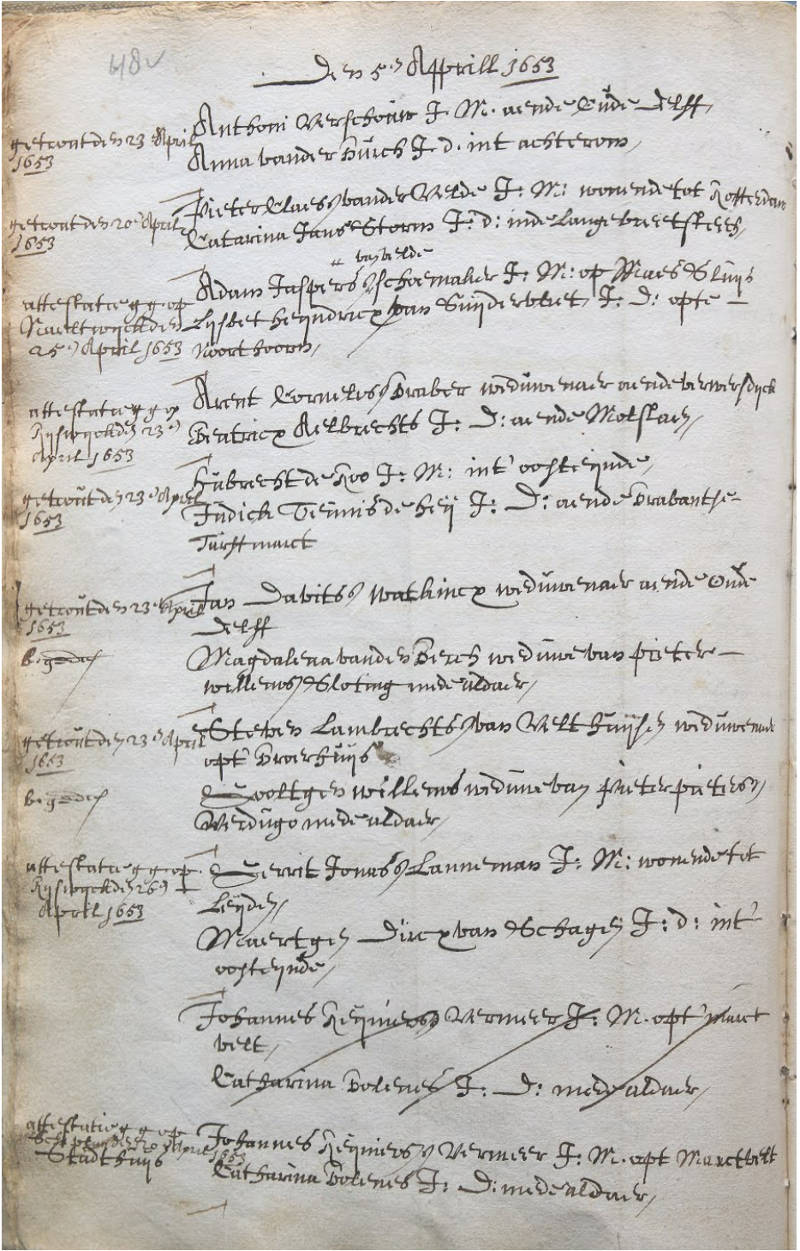 48
Den 5en Apprill 1653
getrout den 23 April
1653
Anthoni Verschouw J. M. aende Oude Delff
Anna vander Buich J. d. int achterom
getrout den 20 April
1653
Pieter Claesz vander Velde J. M: wonende tot Rotterdam
Catarina Jans Storm J. d: inde Langebreetsteech
van velde
attestatie gegeven op
Naeltwyck den
25en April 1653
Adam Jaspersz schoemaker J. M: op Maeslsluijs
Lijsbet Heijndricx van Suijdervliet J. D: opte
Noorthoorn
attestatie op
Rijswyck den 23en
April 1653
Arent Cornelisz Braber weduwenaer aende verwersdyck
Beatricx Aelbrechts J. D: aende Molslaen
getrout den 23en April
1653
Hubrecht de Roo J. M: int oosteijnde
Judick Teunis de Heij J. D: aende Brabantse
Turffmarct
getrout den 23 April
1653
Jan Davitsz Watkincx weduwenaer aende Oude
Delff
Magdalena vanden Berch weduwe van pieter
willemsz Sloting mede aldaer
getrout den 23en April
1653
Steven Lambrechtsz van Velthuijsen weduwenaer
opt Broerhuijs
Sooltgen willems weduwe van Pieter pietersz
Verdugo mede aldaer
attestatie op
Rijswyck den 26en
April 1653
Gerrit Jonasz Lanneman J. M: wonende tot
Leijden
Maertgen Dircx van Schagen J. d: int
oosteijnde
Johannes Reijniersz Vermeer J. M. opt marct
velt
Catharina Bolenes J. D: mede aldaer
attestatie op
Schipluij den 20 April
1653
Stadthuijs
Johannes Reijniersz Vermeer J. M. opt Marctvelt
Catharina Bolenes J. D: mede aldaer